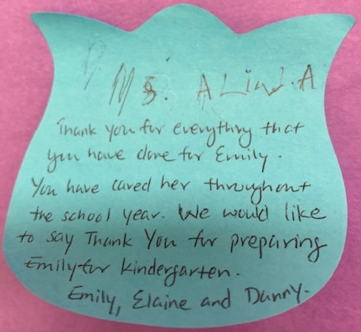 Ms. ALiWiA
Thank you for everything that
you have done for Emily.
You have cared her throughout
the school year. We would like
to say Thank You for preparing
Emily for kindergarten.
Emily, Elaine and Danny.